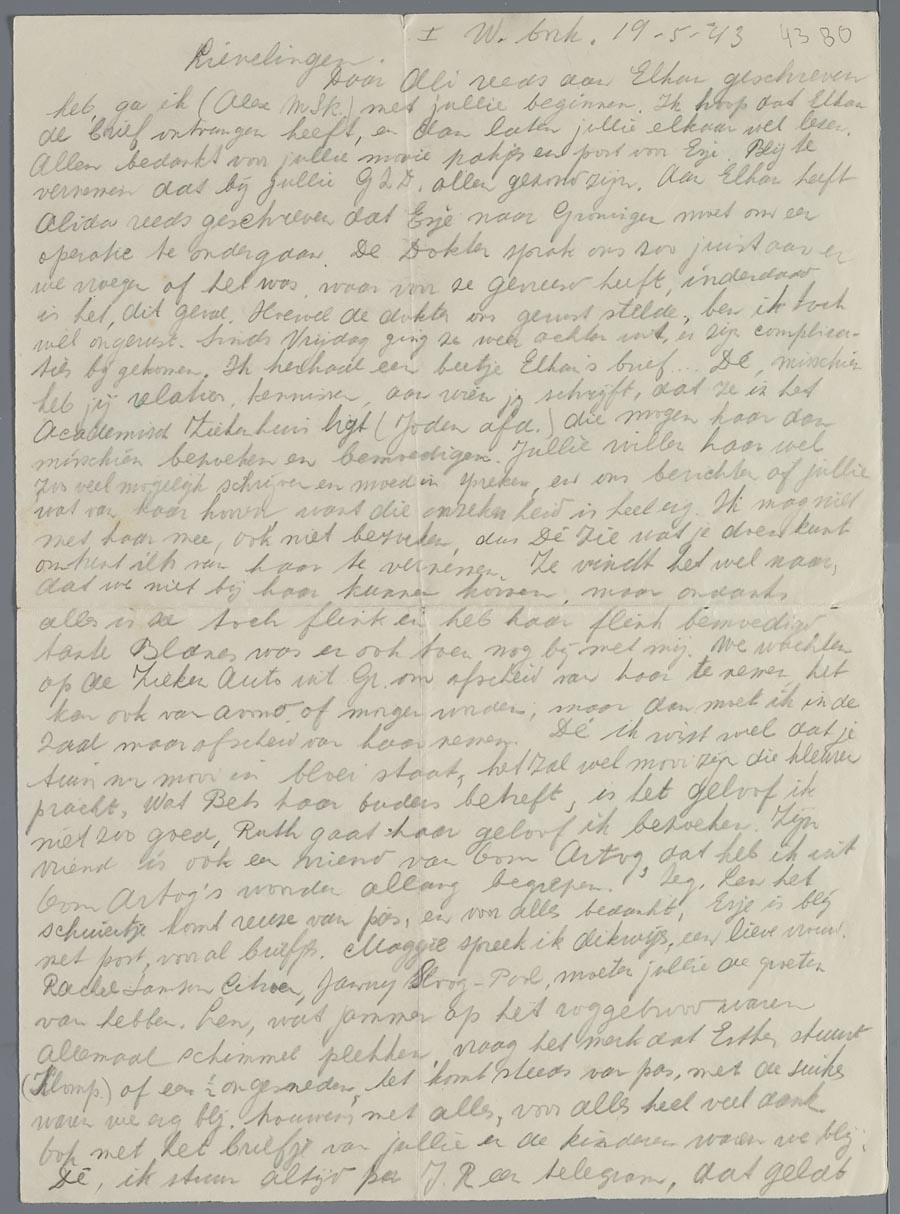 I W. brk. 19-5-'43 43 80
Lievelingen.
Daar Ali reeds aan Elhan geschreven
heb, ga ik (Alex MSK) met jullie beginnen. Ik hoop dat Elhan
de brief ontvangen heeft, en dan laten jullie elkaar wel lezen.
Allen bedankt voor jullie mooie pakjes en post voor Esje. Blij te
vernemen dat bij jullie G.Z.D. allen gezond zijn. Aan Elhan heeft
Alida reeds geschreven dat Esje naar Groningen moet om een
operatie te ondergaan. De Dokter sprak ons zoo juist aan en
we vroegen of het was, waar voor ze gevreesd heeft, inderdaad
is het, dit geval. Hoewel de dokter ons gerust stelde, ben ik toch
wel ongerust. Sinds Vrijdag ging ze weer achter uit, er zijn complica-
ties bij gekomen. Ik herhaal een beetje Elhan's brief... Dé, misschien
heb jij relaties, kennissen, aan wien je schrijft, dat ze in het
Academisch Ziekenhuis ligt (Joden afd.) die mogen haar dan
misschien bezoeken en bemoedigen. Jullie willen haar wel
zoo veel mogelijk schrijven en moed in spreken, en ons berichten of jullie
wat van haar horen want die onzekerheid is heel erg. Ik mag niet
met haar mee, ook niet bezoeken, dus Dé Zie wat je doen kunt
omtrent iets van haar te vernemen. Ze vindt het wel naar,
dat we niet bij haar kunnen komen, maar ondanks
alles is ze toch flink en heb haar flink bemoedigd
tante Blanes was er ook toen nog bij met mij. We wachten
op de Zieken Auto uit Gr. om afscheid van haar te nemen, het
kan ook van avond of morgen worden, maar dan moet ik in de
zaal maar afscheid van haar nemen. Dé ik wist wel dat je
tuin nu mooi in bloei staat, het zal wel mooi zijn die kleuren
pracht. Wat Bets haar ouders betreft, is het geloof ik
niet zoo goed, Ruth gaat haar geloof ik bezoeken. Zijn
vriend is ook een vriend van oom Artog, dat heb ik uit
oom Artog's woorden allang begrepen. Zeg, Len het
schuiertje komt reuze van pas, en voor alles bedankt, Esje is blij
met post, vooral briefjes. Maggie spreek ik dikwijls, een lieve vrouw.
Rachel Samson Citroen, Janny Sloog-Poel, moeten jullie de groeten
van hebben. Len, wat jammer op het roggebrood waren
allemaal schimmel plekken, vraag het merk dat Esther stuurt
(Klomp.) of een ½ ongesneden, het komt steeds van pas, met de suiker
waren we erg blij, trouwens met alles, voor alles heel veel dank
ook met het briefje van jullie en de kinderen waren we blij.
Dé, ik stuur altijd per J.R een telegram, dat geldt